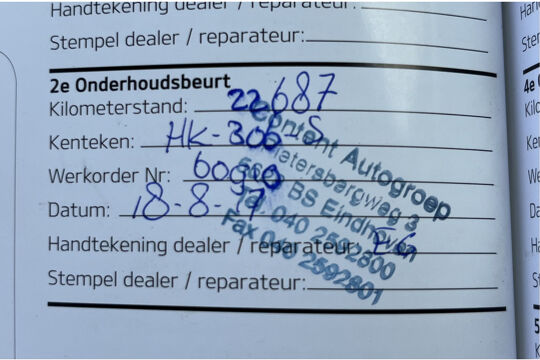 Handtekening dealer / reparateur:
Stempel dealer / reparateur:
2e Onderhoudsbeurt
Kilometerstand: 22687
Kenteken: HK-306-S
Werkorder Nr:
Datum: 18-8-
Handtekening dealer / reparateur:
Stempel dealer / reparateur:
Content Autogroep
Meierijsbergweg 3
BS Eindhoven
Tel. 040 2592800
Fax 040 2592801
4e